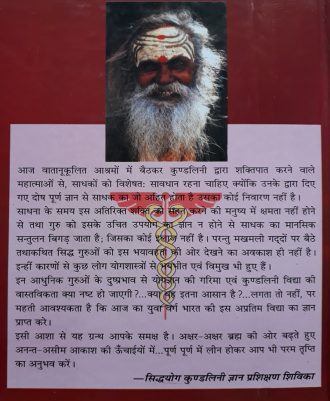 आज वातानूकूलित आश्रमों में बैठकर कुण्डलिनी द्वारा शक्तिपात करने वाले
महात्माओं से, साधकों को विशेषतः सावधान रहना चाहिए क्योंकि उनके द्वारा दिए
गए दोष पूर्ण ज्ञान से साधक का जो अहित होता है उसका कोई निवारण नहीं है।
साधना के समय इस अतिरिक्त शक्ति को सहन करने की मनुष्य में क्षमता नहीं होने
से तथा गुरु को इसके उचित उपयोग का ज्ञान न होने से साधक का मानसिक
सन्तुलन बिगड़ जाता है; जिसका कोई इलाज नहीं है। परन्तु मखमली गद्दों पर बैठे
तथाकथित सिद्ध गुरुओं को इस भयावकता की ओर देखने का अवकाश ही नहीं है।
इन्हीं कारणों से कुछ लोग योगशास्त्रों से भयभीत एवं विमुख भी हुए हैं।
इन आधुनिक गुरुओं के दुष्प्रभाव से योगज्ञान की गरिमा एवं कुण्डलिनी विद्या की
वास्तविकता क्या नष्ट हो जाएगी?...क्या यह इतना आसान है?...लगता तो नहीं, पर
महती आवश्यकता है कि आज का युवा वर्ग भारत की इस अप्रतिम विद्या का ज्ञान
प्राप्त करे।
इसी आशा से यह ग्रन्थ आपके समक्ष है। अक्षर-अक्षर ब्रह्म की ओर बढ़ते हुए
अनन्त-असीम आकाश की ऊँचाईयों में...पूर्ण पूर्ण में लीन होकर आप भी परम तृप्ति
का अनुभव करें।
—सिद्धयोग कुण्डलिनी ज्ञान प्रशिक्षण शिविका